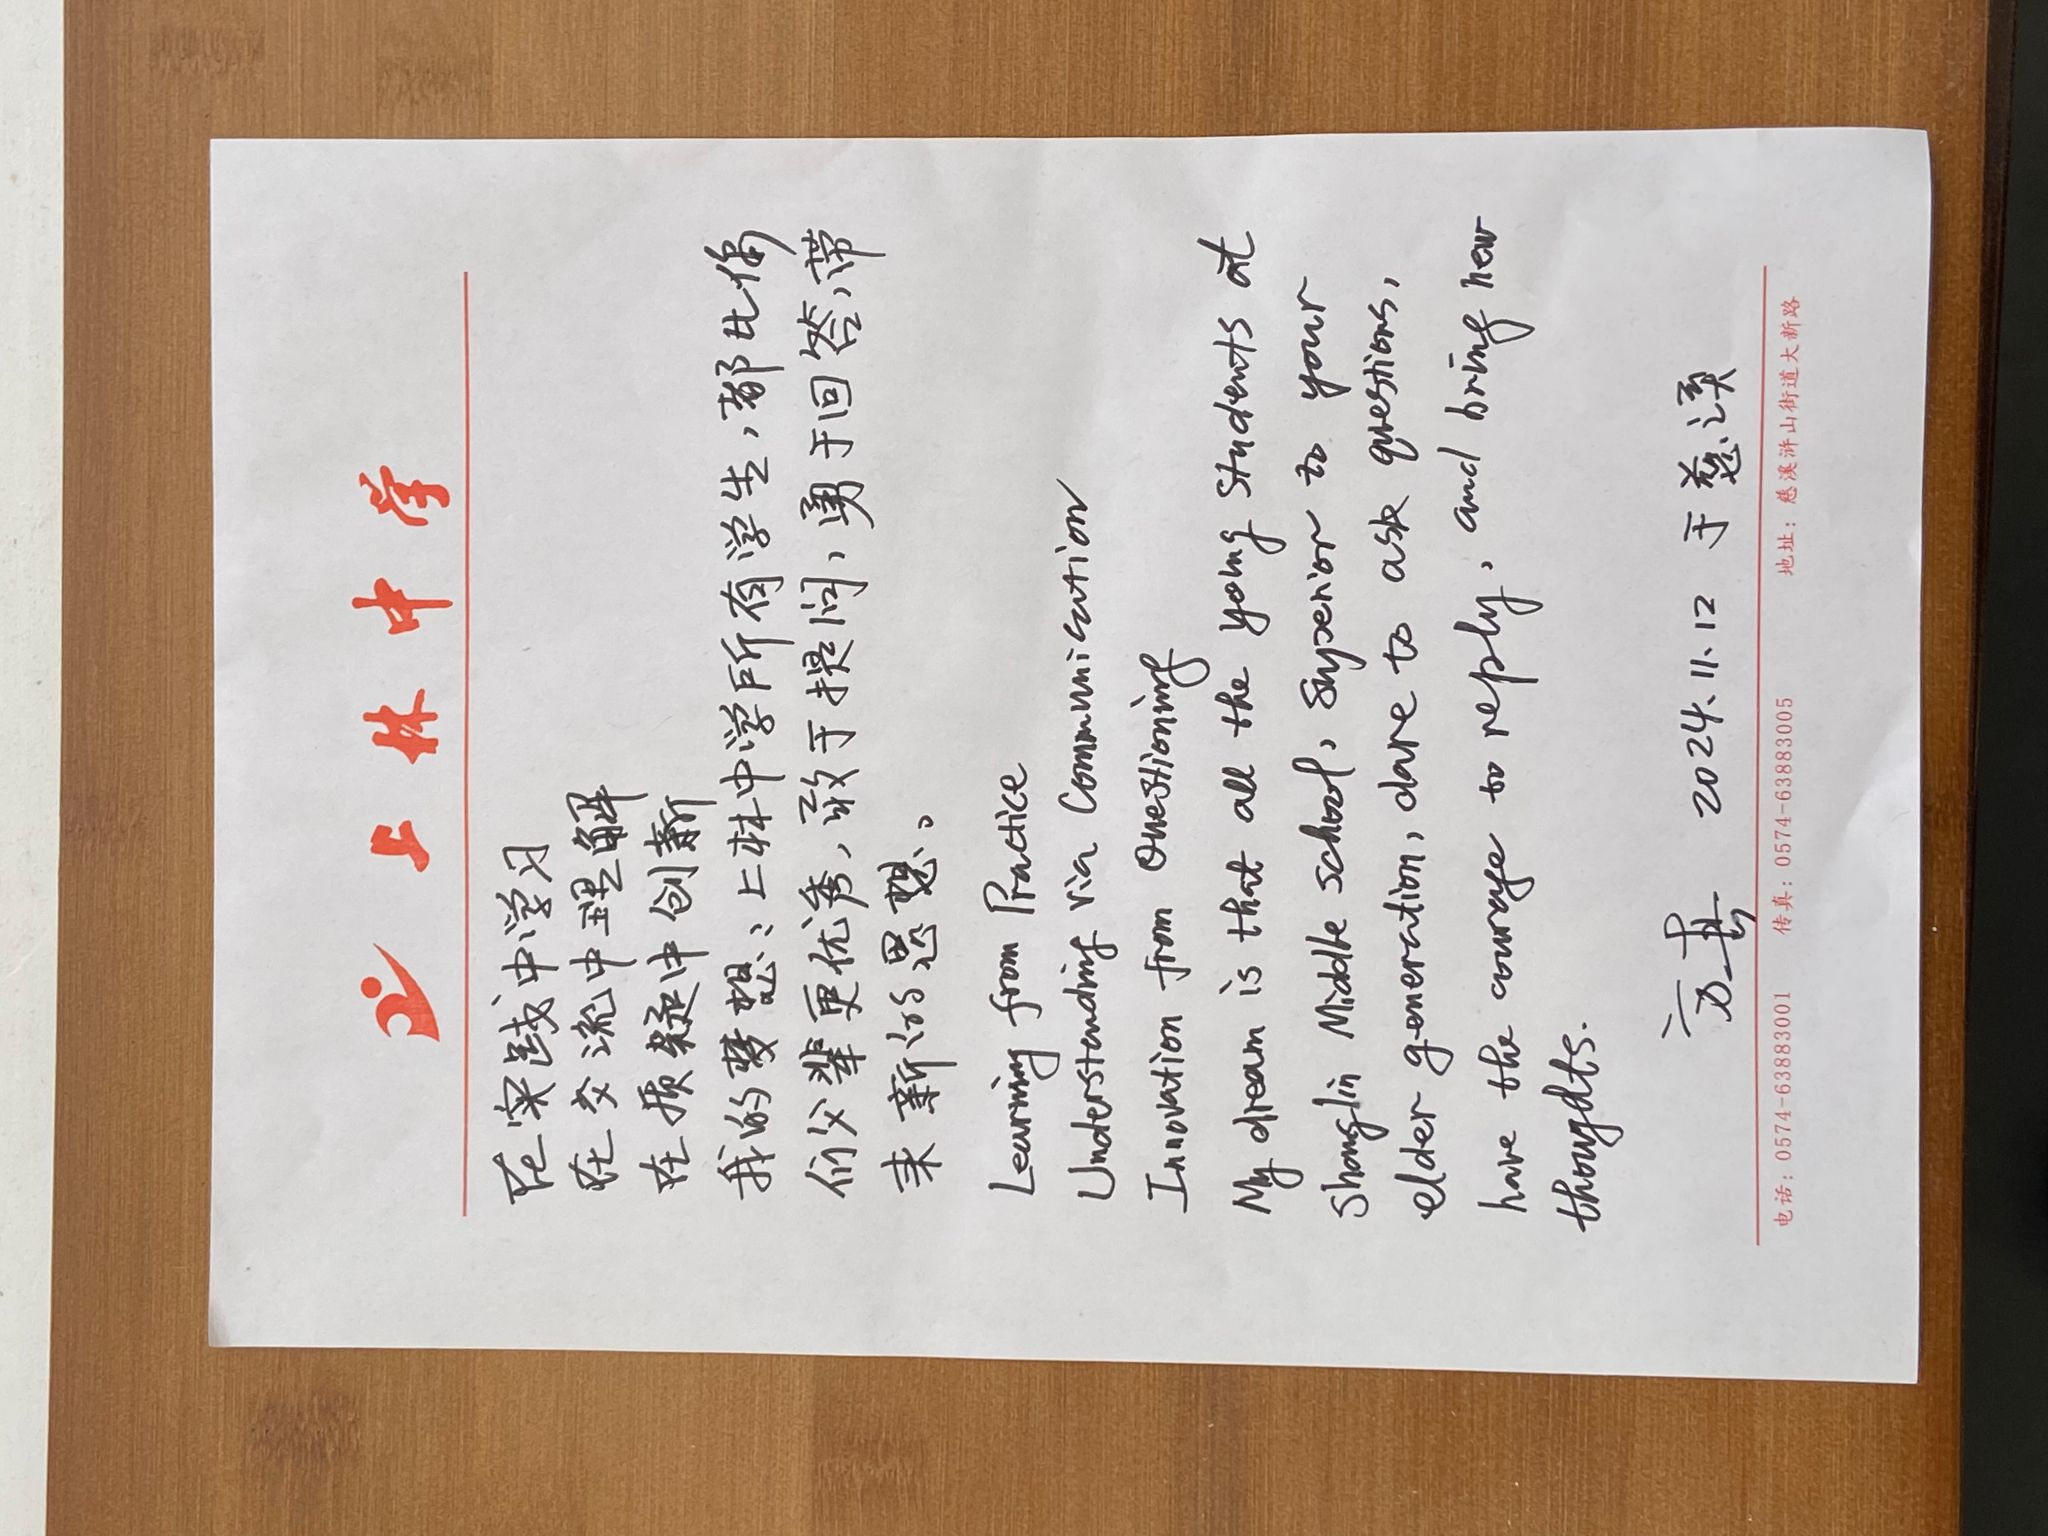 上林中学
在实践中学习
在交流中理解
在质疑中创新
我的梦想：上林中学所有学生，都比你
们父辈更优秀，敢于提问，勇于回答，带
来新的思想。
Learning from Practice
Understanding via Communication
Innovation from Questioning
My dream is that all the young students at
Shanglin Middle School, superior to your
elder generation, dare to ask questions,
have the courage to reply, and bring new
thoughts.
2024.11.12 于慈溪
电话：0574-63883001 传真：0574-63883005 地址：慈溪浒山街道大新路